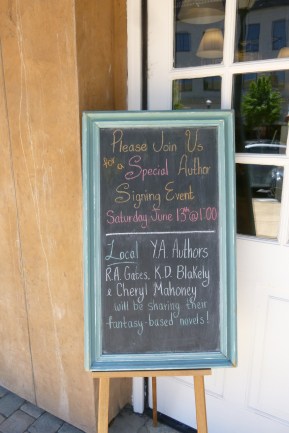 Please Join Us
for a Special Author
Signing Event
Saturday, June 13th @ 1:00
Local Y.A. Authors
R.A. Gates, K.D. Blakely
& Cheryl Mahoney
will be sharing their
fantasy-based novels!